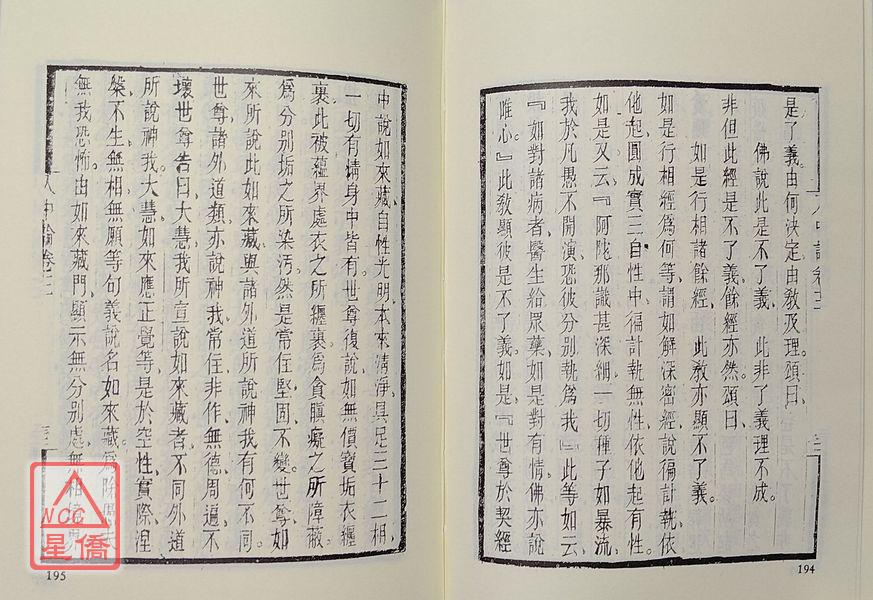 是了義。由何決定。由教及理。頌曰、
佛說此是不了義　此非了義理不成。
非但此經是不了義、餘經亦然。頌曰、
如是行相諸餘經、　此教亦顯不了義。
如是行相經爲何等、謂如解深密經說徧計執、依
他起、圓成實三自性中、徧計執無性、依他起有性。
如是又云、『阿陀那識甚深細、一切種子如暴流、
我於凡愚不開演、恐彼分別執爲我』此等。如云、
『如對諸病者、醫生給眾藥、如是對有情、佛亦說
唯心。』此教顯彼是不了義。如是、『世尊於契經
194
中說如來藏、自性光明、本來清淨、具足三十二相、
一切有情身中皆有。世尊復說如無價寶垢衣纏
裹、此被蘊界處衣之所纏裹、爲貪瞋癡之所障蔽、
爲分別垢之所染污、然是常住堅固不變。世尊、如
來所說此如來藏、與諸外道所說神我有何不同。
世尊、諸外道類、亦說神我常住、非作、無德、周遍、不
壞。世尊告曰、大慧、我所宣說如來藏者、不同外道
所說神我。大慧、如來應正覺等、是於空性、實際、涅
槃、不生、無相、無願等句義、說名如來藏。爲除愚夫
無我恐怖。由如來藏門、顯示無分別處、無相境界
入中論卷三
195
WCC
星僑